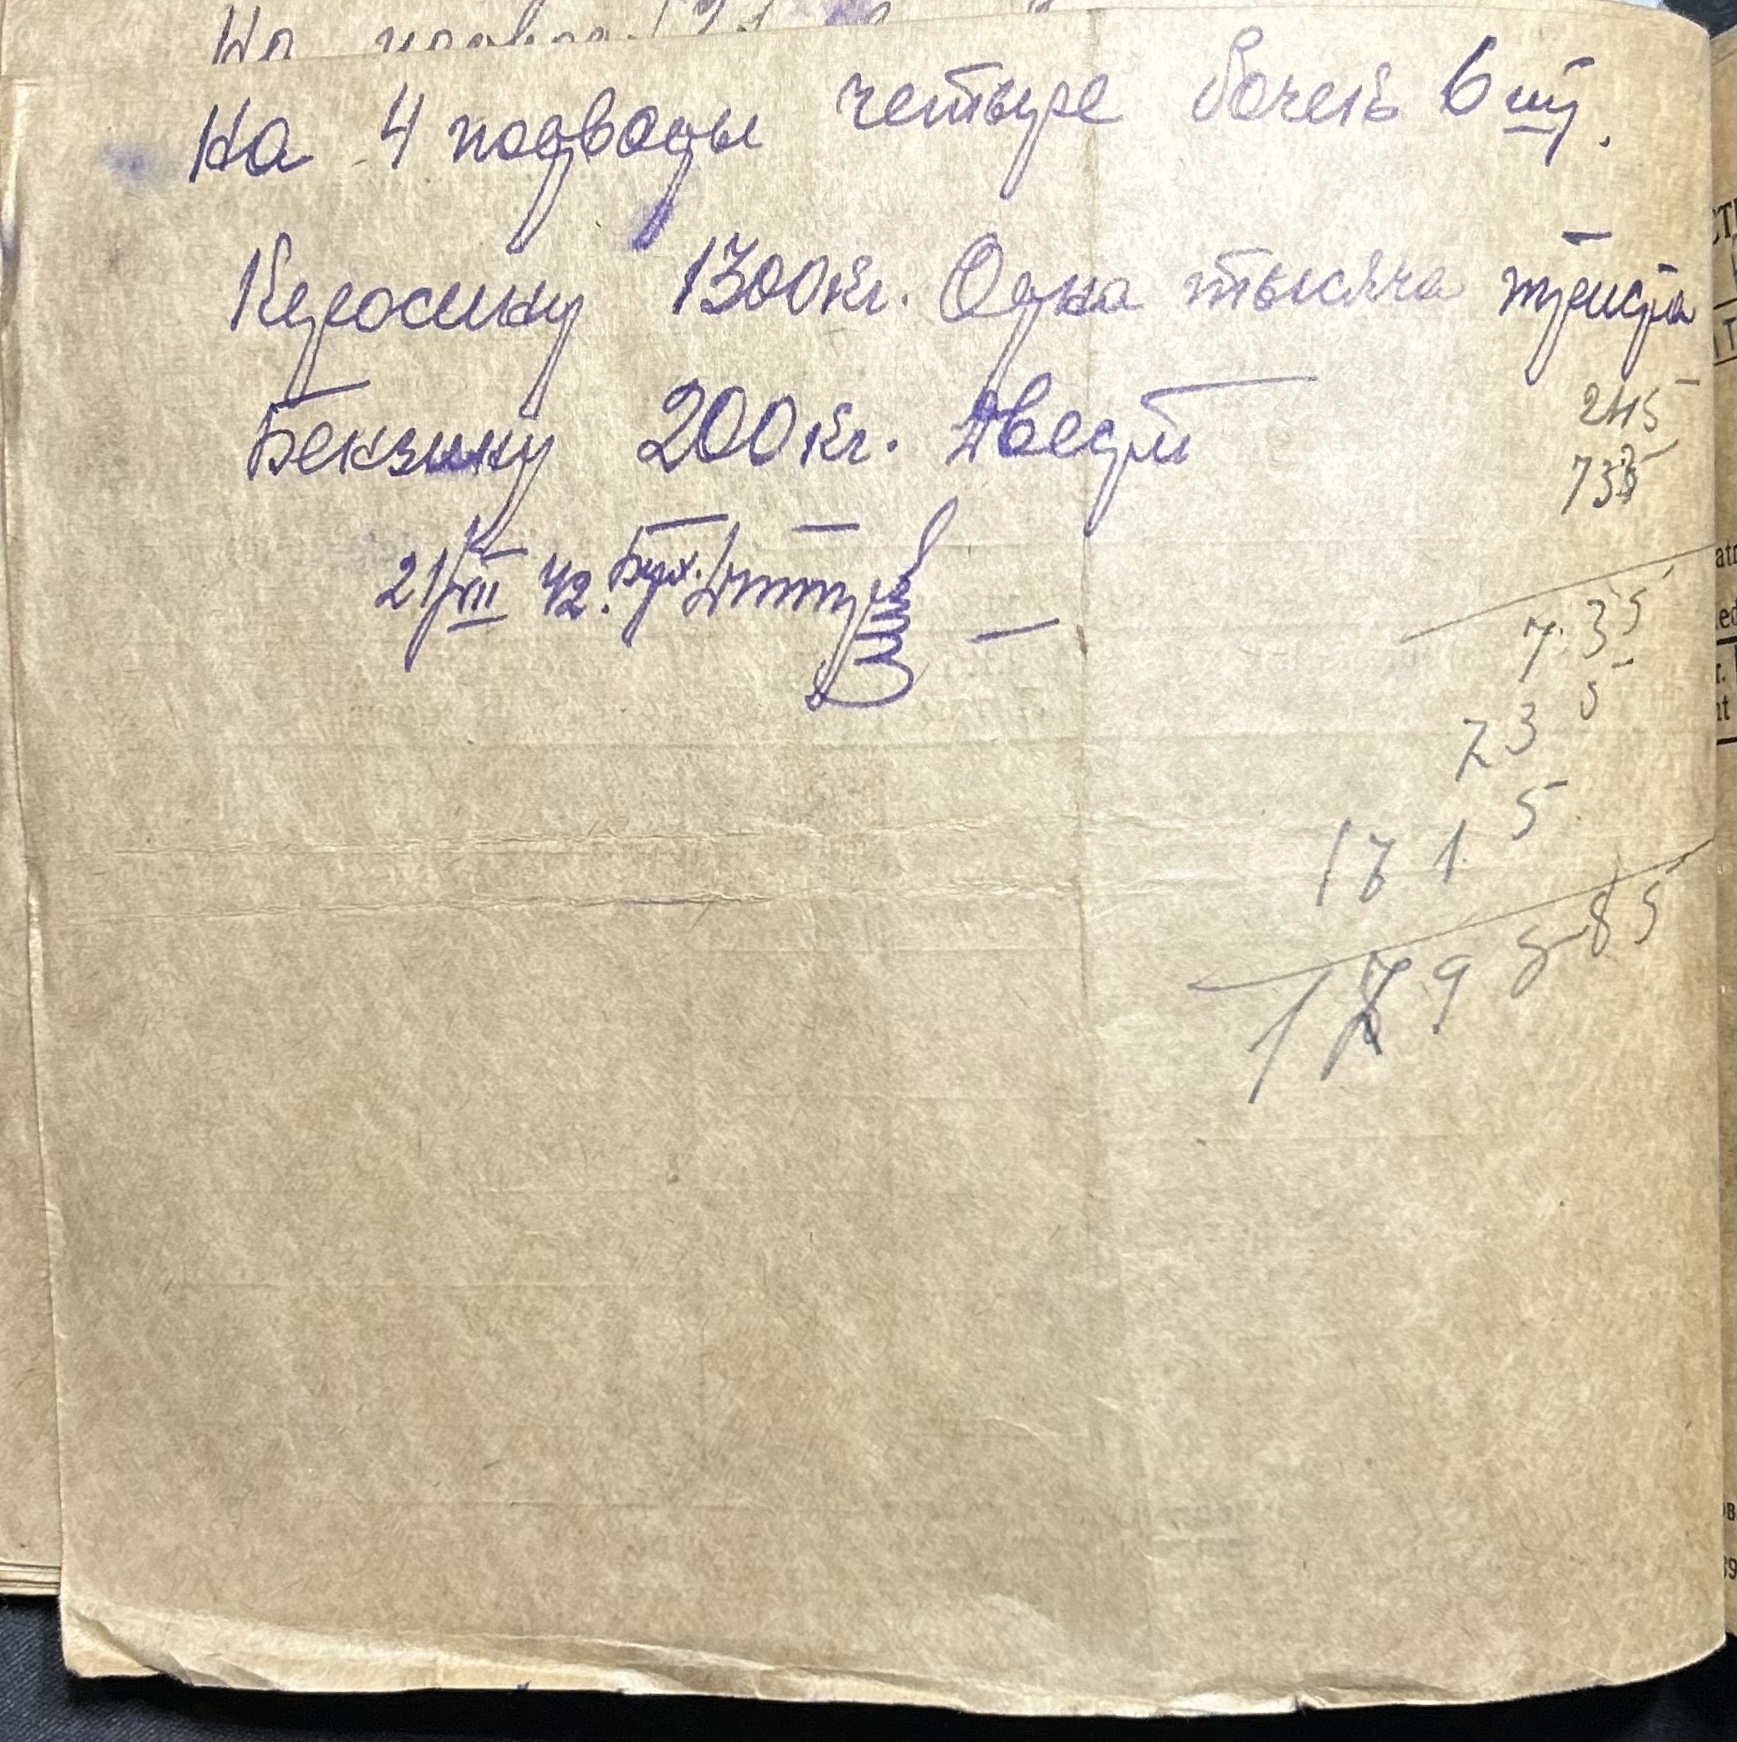 На 4 подводы четыре бочек 6 шт.
Керосину 1300 кг. Одна тысяча триста
Бензину 200 кг. Двест
245
735
21/VII 42. Бух.
7.35
73 5
171 5
179585